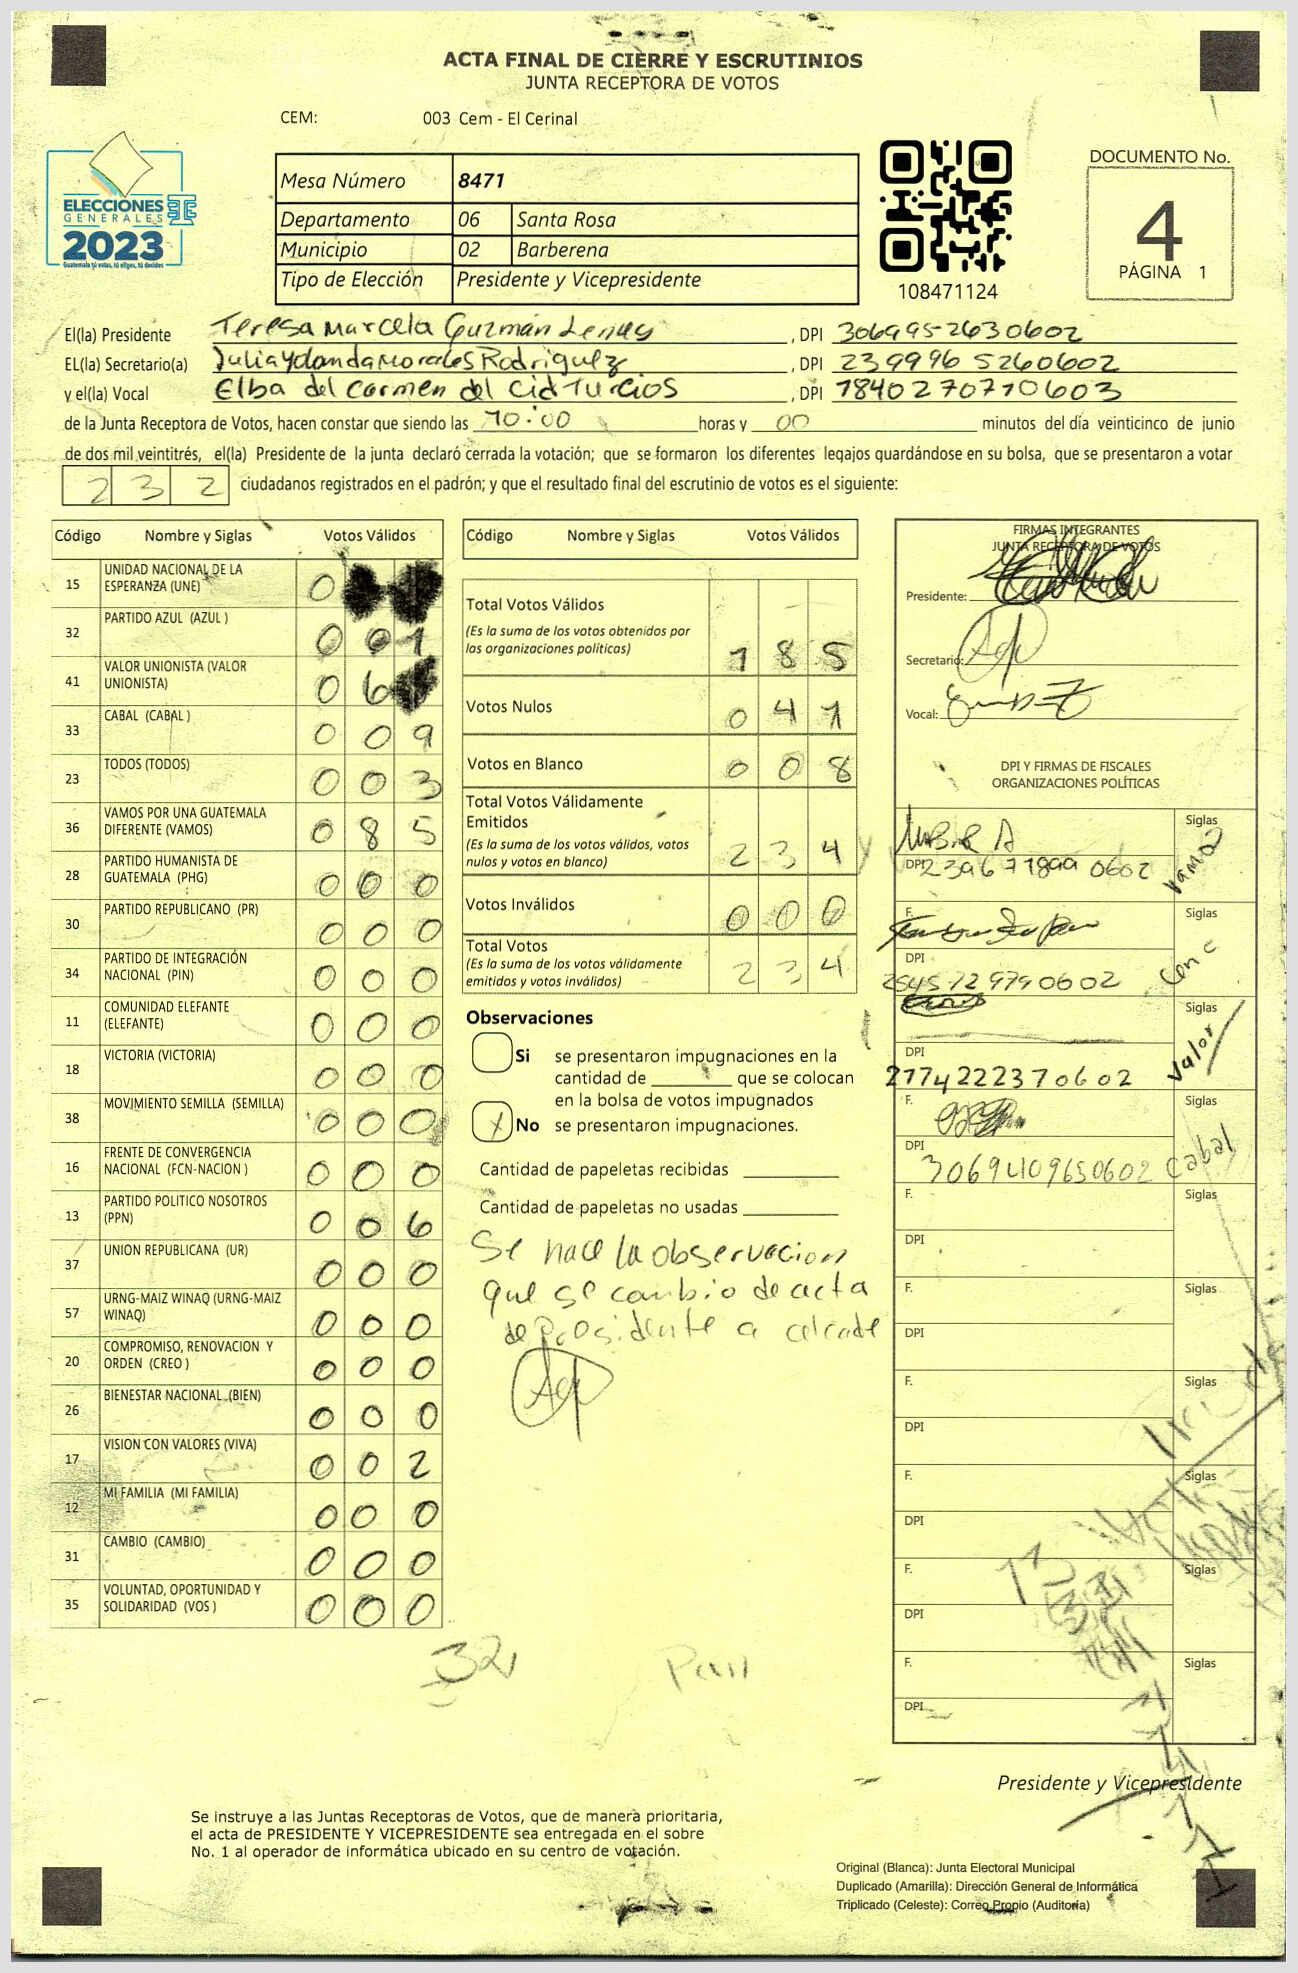 ACTA FINAL DE CIERRE Y ESCRUTINIOS
JUNTA RECEPTORA DE VOTOS
CEM: 003 Cem - El Cerinal
ELECCIONES
GENERALES
2023
Guatemala tú votas, tú eliges, tú decides
Mesa Número 8471
Departamento 06 Santa Rosa
Municipio 02 Barberena
Tipo de Elección Presidente y Vicepresidente
108471124
DOCUMENTO No.
4
PÁGINA 1
El(la) Presidente Teresa Marcela Guzmán , DPI 3069952630602
EL(la) Secretario(a) Julia Yolanda Morales Rodriguez , DPI 239996 5260602
y el(la) Vocal Elba del Carmen del Cid Turcios , DPI 1840270710603
de la Junta Receptora de Votos, hacen constar que siendo las 10:00 horas y 00 minutos del día veinticinco de junio
de dos mil veintitrés, el(la) Presidente de la junta declaró cerrada la votación; que se formaron los diferentes legajos guardándose en su bolsa, que se presentaron a votar
2 3 2 ciudadanos registrados en el padrón; y que el resultado final del escrutinio de votos es el siguiente:
Código Nombre y Siglas Votos Válidos
15 UNIDAD NACIONAL DE LA ESPERANZA (UNE) 0
32 PARTIDO AZUL (AZUL ) 0 0 1
41 VALOR UNIONISTA (VALOR UNIONISTA) 0 6
33 CABAL (CABAL ) 0 0 9
23 TODOS (TODOS) 0 0 3
36 VAMOS POR UNA GUATEMALA DIFERENTE (VAMOS) 0 8 5
28 PARTIDO HUMANISTA DE GUATEMALA (PHG) 0 0 0
30 PARTIDO REPUBLICANO (PR) 0 0 0
34 PARTIDO DE INTEGRACIÓN NACIONAL (PIN) 0 0 0
11 COMUNIDAD ELEFANTE (ELEFANTE) 0 0 0
18 VICTORIA (VICTORIA) 0 0 0
38 MOVIMIENTO SEMILLA (SEMILLA) 0 0 0
16 FRENTE DE CONVERGENCIA NACIONAL (FCN-NACION ) 0 0 0
13 PARTIDO POLITICO NOSOTROS (PPN) 0 0 6
37 UNION REPUBLICANA (UR) 0 0 0
57 URNG-MAIZ WINAQ (URNG-MAIZ WINAQ) 0 0 0
20 COMPROMISO, RENOVACION Y ORDEN (CREO ) 0 0 0
26 BIENESTAR NACIONAL (BIEN) 0 0 0
17 VISION CON VALORES (VIVA) 0 0 2
12 MI FAMILIA (MI FAMILIA) 0 0 0
31 CAMBIO (CAMBIO) 0 0 0
35 VOLUNTAD, OPORTUNIDAD Y SOLIDARIDAD (VOS ) 0 0 0
32
Código Nombre y Siglas Votos Válidos
Total Votos Válidos
(Es la suma de los votos obtenidos por
las organizaciones políticas) 1 8 5
Votos Nulos 0 4 1
Votos en Blanco 0 0 8
Total Votos Válidamente
Emitidos
(Es la suma de los votos válidos, votos
nulos y votos en blanco) 2 3 4
Votos Inválidos 0 0 0
Total Votos
(Es la suma de los votos válidamente
emitidos y votos inválidos) 2 3 4
Observaciones
Si se presentaron impugnaciones en la
cantidad de ________ que se colocan
en la bolsa de votos impugnados
X No se presentaron impugnaciones.
Cantidad de papeletas recibidas
Cantidad de papeletas no usadas
Se hace la observacion
que se cambio de acta
de Presidente a alcalde
FIRMAS INTEGRANTES
JUNTA RECEPTORA DE VOTOS
Presidente:
Secretario:
Vocal:
DPI Y FIRMAS DE FISCALES
ORGANIZACIONES POLÍTICAS
Siglas
DPI 239671899 0602 Vamos
F. Siglas
DPI
2545729790602
Siglas
Valor
DPI
2774222370602
F. Siglas
DPI
3069409650602 Cabal
F. Siglas
DPI
F. Siglas
DPI
F. Siglas
DPI
F. Siglas
DPI
F. Siglas
DPI
F. Siglas
DPI
Presidente y Vicepresidente
Se instruye a las Juntas Receptoras de Votos, que de manera prioritaria,
el acta de PRESIDENTE Y VICEPRESIDENTE sea entregada en el sobre
No. 1 al operador de informática ubicado en su centro de votación.
Original (Blanca): Junta Electoral Municipal
Duplicado (Amarilla): Dirección General de Informática
Triplicado (Celeste): Correo Propio (Auditoría)